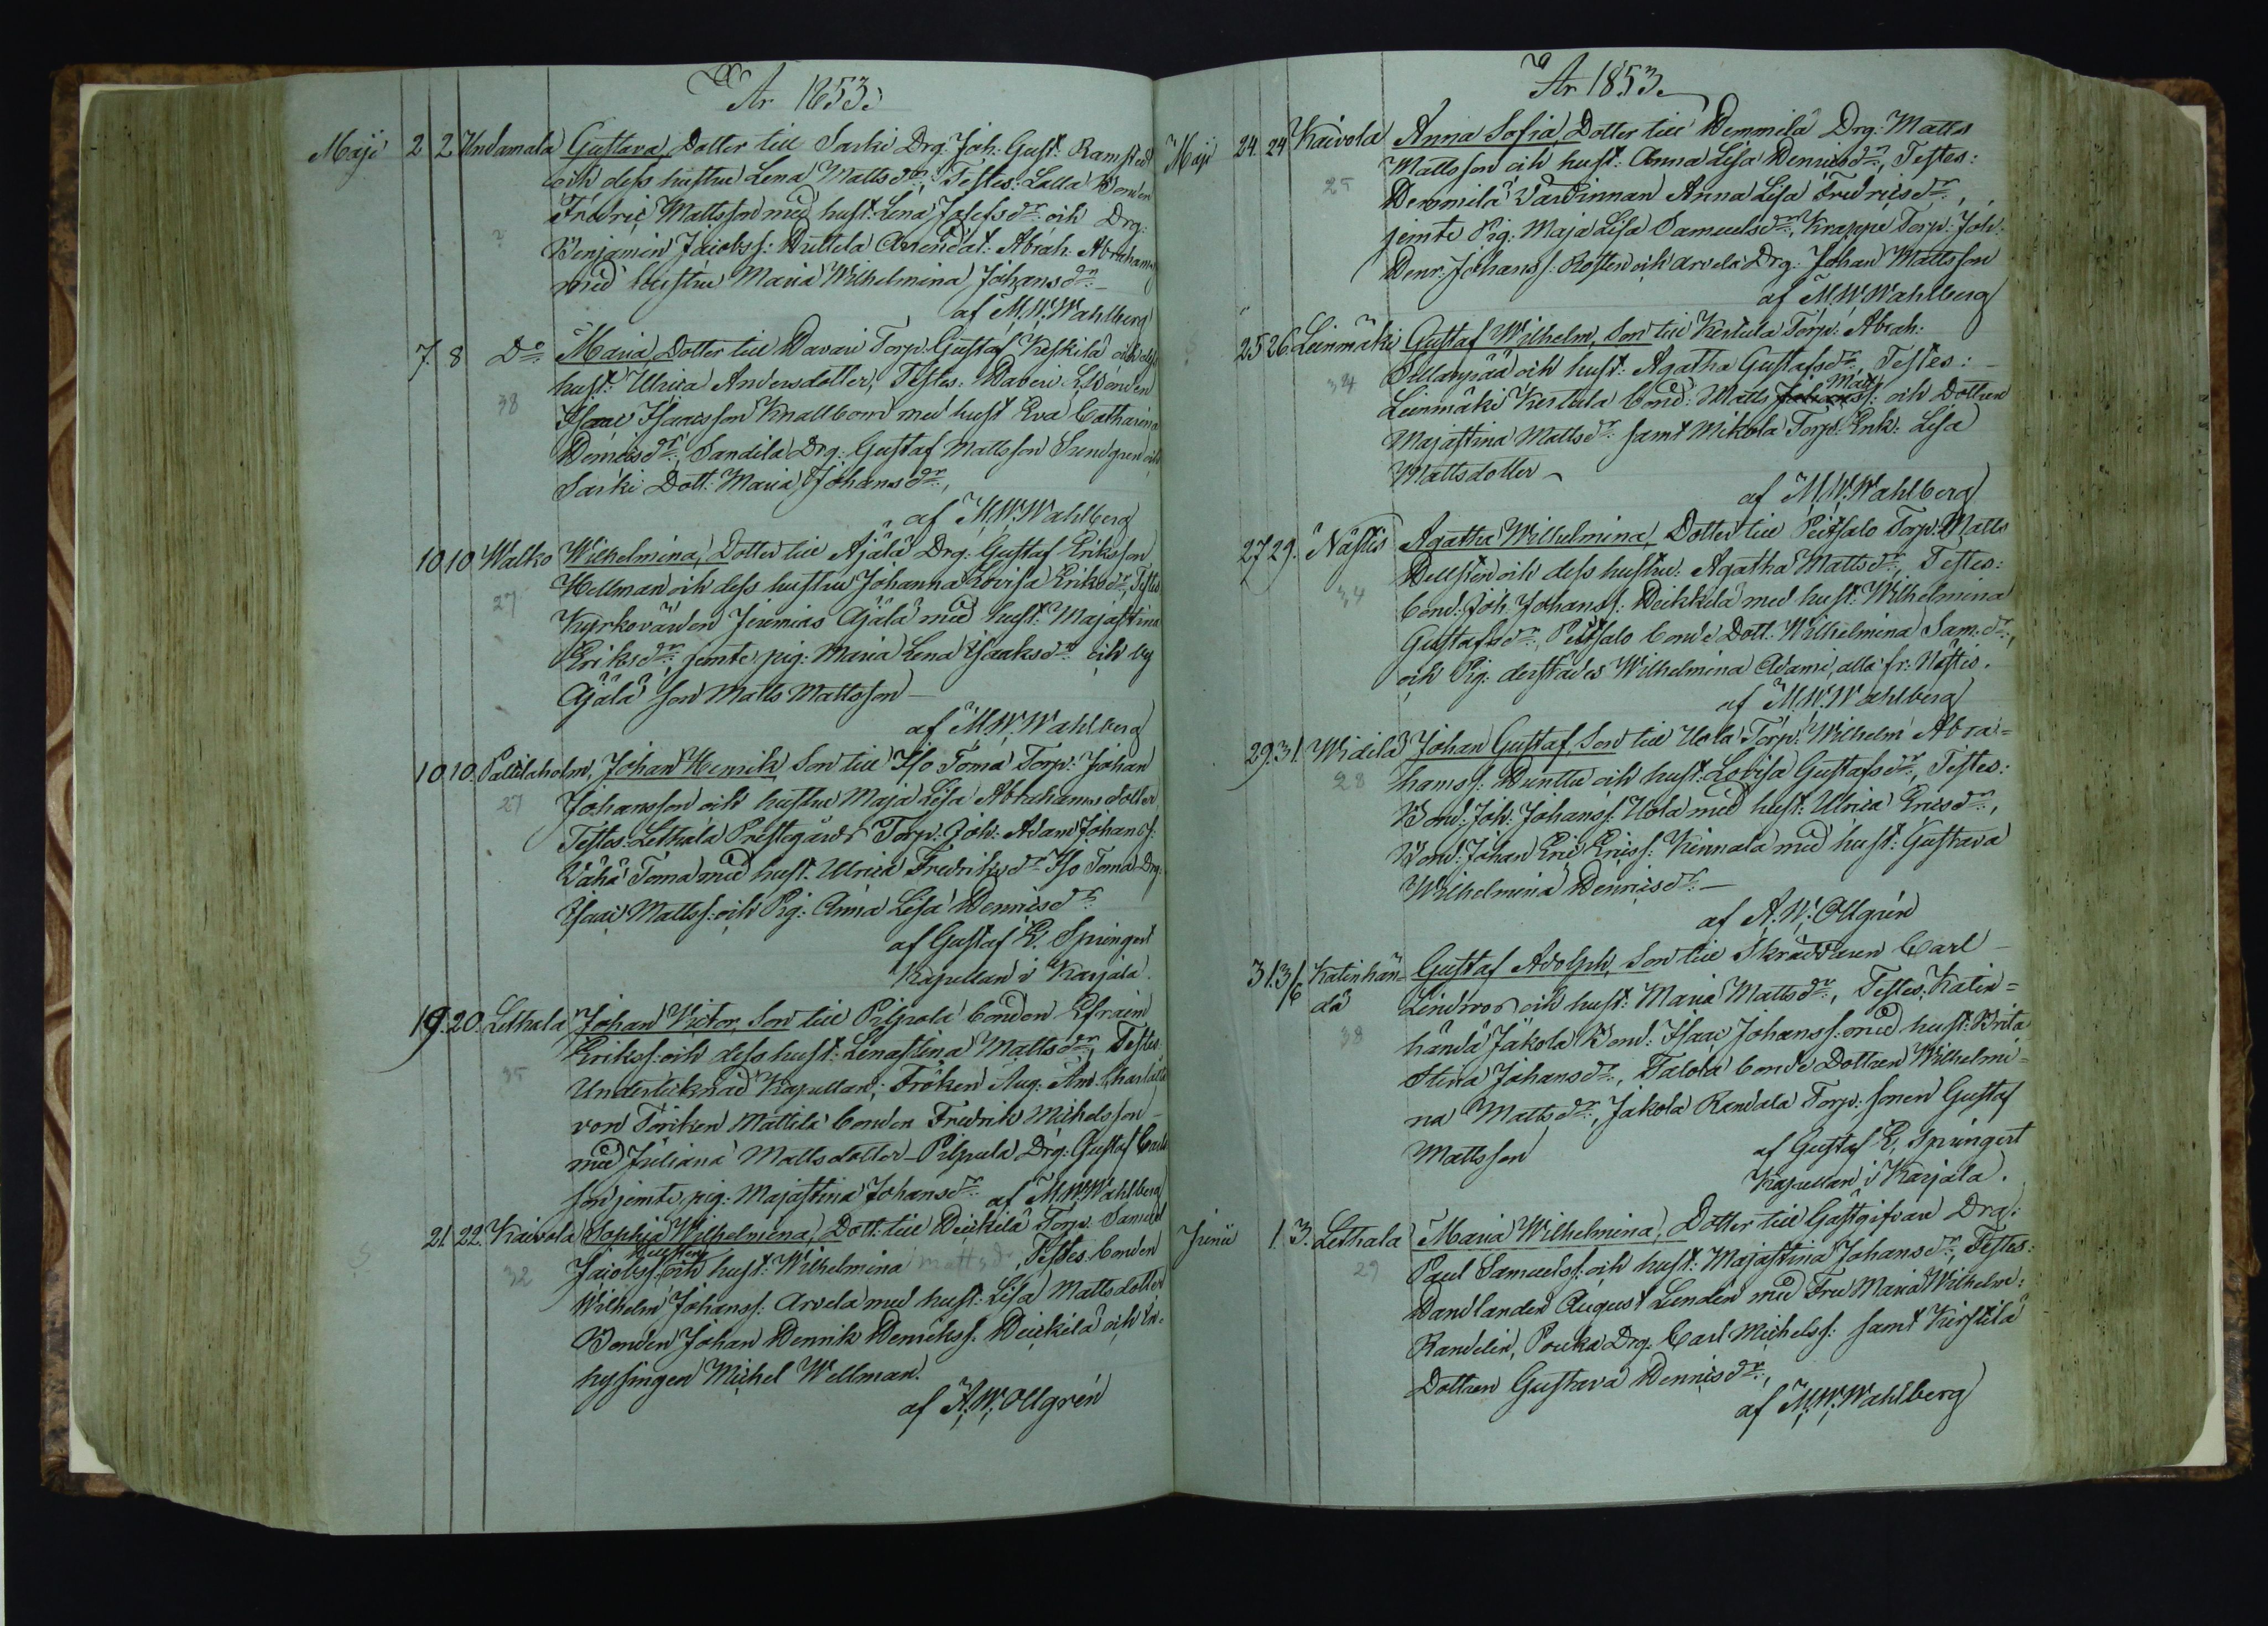 År 1853.
Maji 2. 2 Undamala Gustava, Dotter till Sarki Drg. Joh. Gust. Ramstedt
och dess hustru Lena Mattsdr: Testes: Lalla Bonden
Fredric Mattsson med hust. Lena Josefsdr: och Drg:
Benjamin Jacobss: Huttela Arendat: Abrah. Abrahams
med hustru Maria Wilhelmina Johansdr
af M.W. Wahlberg
7. 8 Do: Maria, Dotter till Havari Torp. Gustaf Keskilä och dess
38 hust. Ulrica Andersdotter, Testes: Haveri Bonden
Isaac Isaacsson Knallbom med hust Eva Catharina
Henricsdr: Sandila Drg: Gustaf Mattsson Grendgren och
Sarki Dott. Maria Johansdr:,
af M.W. Wahlberg
10 10 Walko Wilhelmina, Dotter till Ajälä Drg: Gustaf Eriksson
27 Hellman och dess hustru Johanna Lovisa Eriksdr, Testes
Kyrkovärden Jeremias Ajälä med hust. Majastina
Eriksdr: jemte pig: Maria Lena Isaaksdr och by
Ajälä son Matts Mattsson
af M.W. Wahlberg
10. 10. Palilaholm, Johan Henrik Son till Iso Toma Torp: Johan
27 Johansson och hustru Maja Lisa Abrahams dotter
Testes: Lethala Prestegårds Torp: Joh: Adam Johanss:
Vähä Toma med hust. Ulrica Fredriksdr Iso Toma Drg.
Isaac Mattss: och Pig: Anna Lisa Henricsdr
af Gustaf E. Springert
Kapellan i Karjala.
19. 20. Lethala Johan Victor, Son till Pilpola bonden Efraim
35 Erikss: och dess hust: Lenastina Mattsdr: Testes
Undertecknad Kapellan, Fröken Aug. Am. Charlotta
von Töriken Mattila bonden Fredrik Michelsson
med Juliana Mattsdotter Pilpula Drg: Gustaf Carls
son jemte pig: Majastina Johansdr: af M.W. Wahlberg
21. 22. Kaivola Sophia Wilhelmina, Dott: till Heickilä Torp: Samuel
32 Jacobss: Hellsten och hust: Wilhelmina Mattsdr, Testes: bonden
Wilhelm Johanss: Arvela med hust: Lisa Mattsdotter
Bonden Johan Henrik Henrikss: Heickilä och in-
hysingen Michel Wellman.
af A.W. Ollgrén
År 1853.
Maji 24. 24 Kaivola Anna Sofia, Dotter till Hemmilä Drg: Matts
25 Mattsson och hust: Anna Lisa Henricsdr:, Testes:
Hemmilä Värdinnan Anna Lisa Fredricsdr:,
jemte Pig: Maja Lisa Samuelsdr:, Krappe Torp: Joh.
Henr. Johanss: Rosten och Arvela Drg: Johan Mattsson
af M.W. Wahlberg
25 26. Leinmäki Gustaf Wilhelm, Son till Kertula Torp: Abrah:
34 Pillarpää och hust: Agatha Gustafsdr, Testes:
Leinmäki Kertula bond: Matts Matts: och Dottren
Majastina Mattsdr: samt Mikola Torp: Enk: Lisa
Mattsdotter
af M.W. Wahlberg
27 29. Nästis Agatha Wilhelmina, Dotter till Peitsalo Torp: Matts
34 Hellsten och dess hustru: Agatha Mattsdr:, Testes:
bond: Joh. Johanss: Heikkilä med hust: Wilhelmina
Gustafsdr:, Peitsalo bonde Dott: Wilhelmina Sam.dr:,
och Pig: derstädes Wilhelmina Adami, alla fr: Nästis.
af M.W. Wahlberg
29. 31. Widilä Johan Gustaf, Son till Uola Torp: Wilhelm Abra=
28 hamss: Huntta och hust: Lovisa Gustafsdr:, Testes:
Bond: Joh: Johanss: Uola med hust. Ulrica Ericsdr:,
Bond: Johan Eric Ericss: Kinnala med hust: Gustava
Wilhelmina Henricsdr:
af A.W. Ollgrén
31. 3/6 Katinhän= Gustaf Adolph, Son till Skräddaren Carl
dä Lindroos och hust: Maria Mattsdr:, Testes: Katin=
38 händä Jakola Bond: Isaac Johanss: med hust: Brita
Stina Johansdr:, Talola bonde Dottren Wilhelmi=
na Mattsdr:, Jakola Randala Torp: sonen Gustaf
Mattsson af Gustaf E. Springert
Kapellan i Karjala.
Junii 1. 3. Lethala Maria Wilhelmina, Dotter till Gästgifvar Drg:
29 Paul Samuelss: och hust: Majastina Johansdr:, Testes:
Handlanden August Lindén med Fru Maria Wilhelm:
Randelin, Pouka Drg: Carl Michelss: samt Kirstilä
Dottren Gustava Henricsdr:,
af M.W. Wahlberg